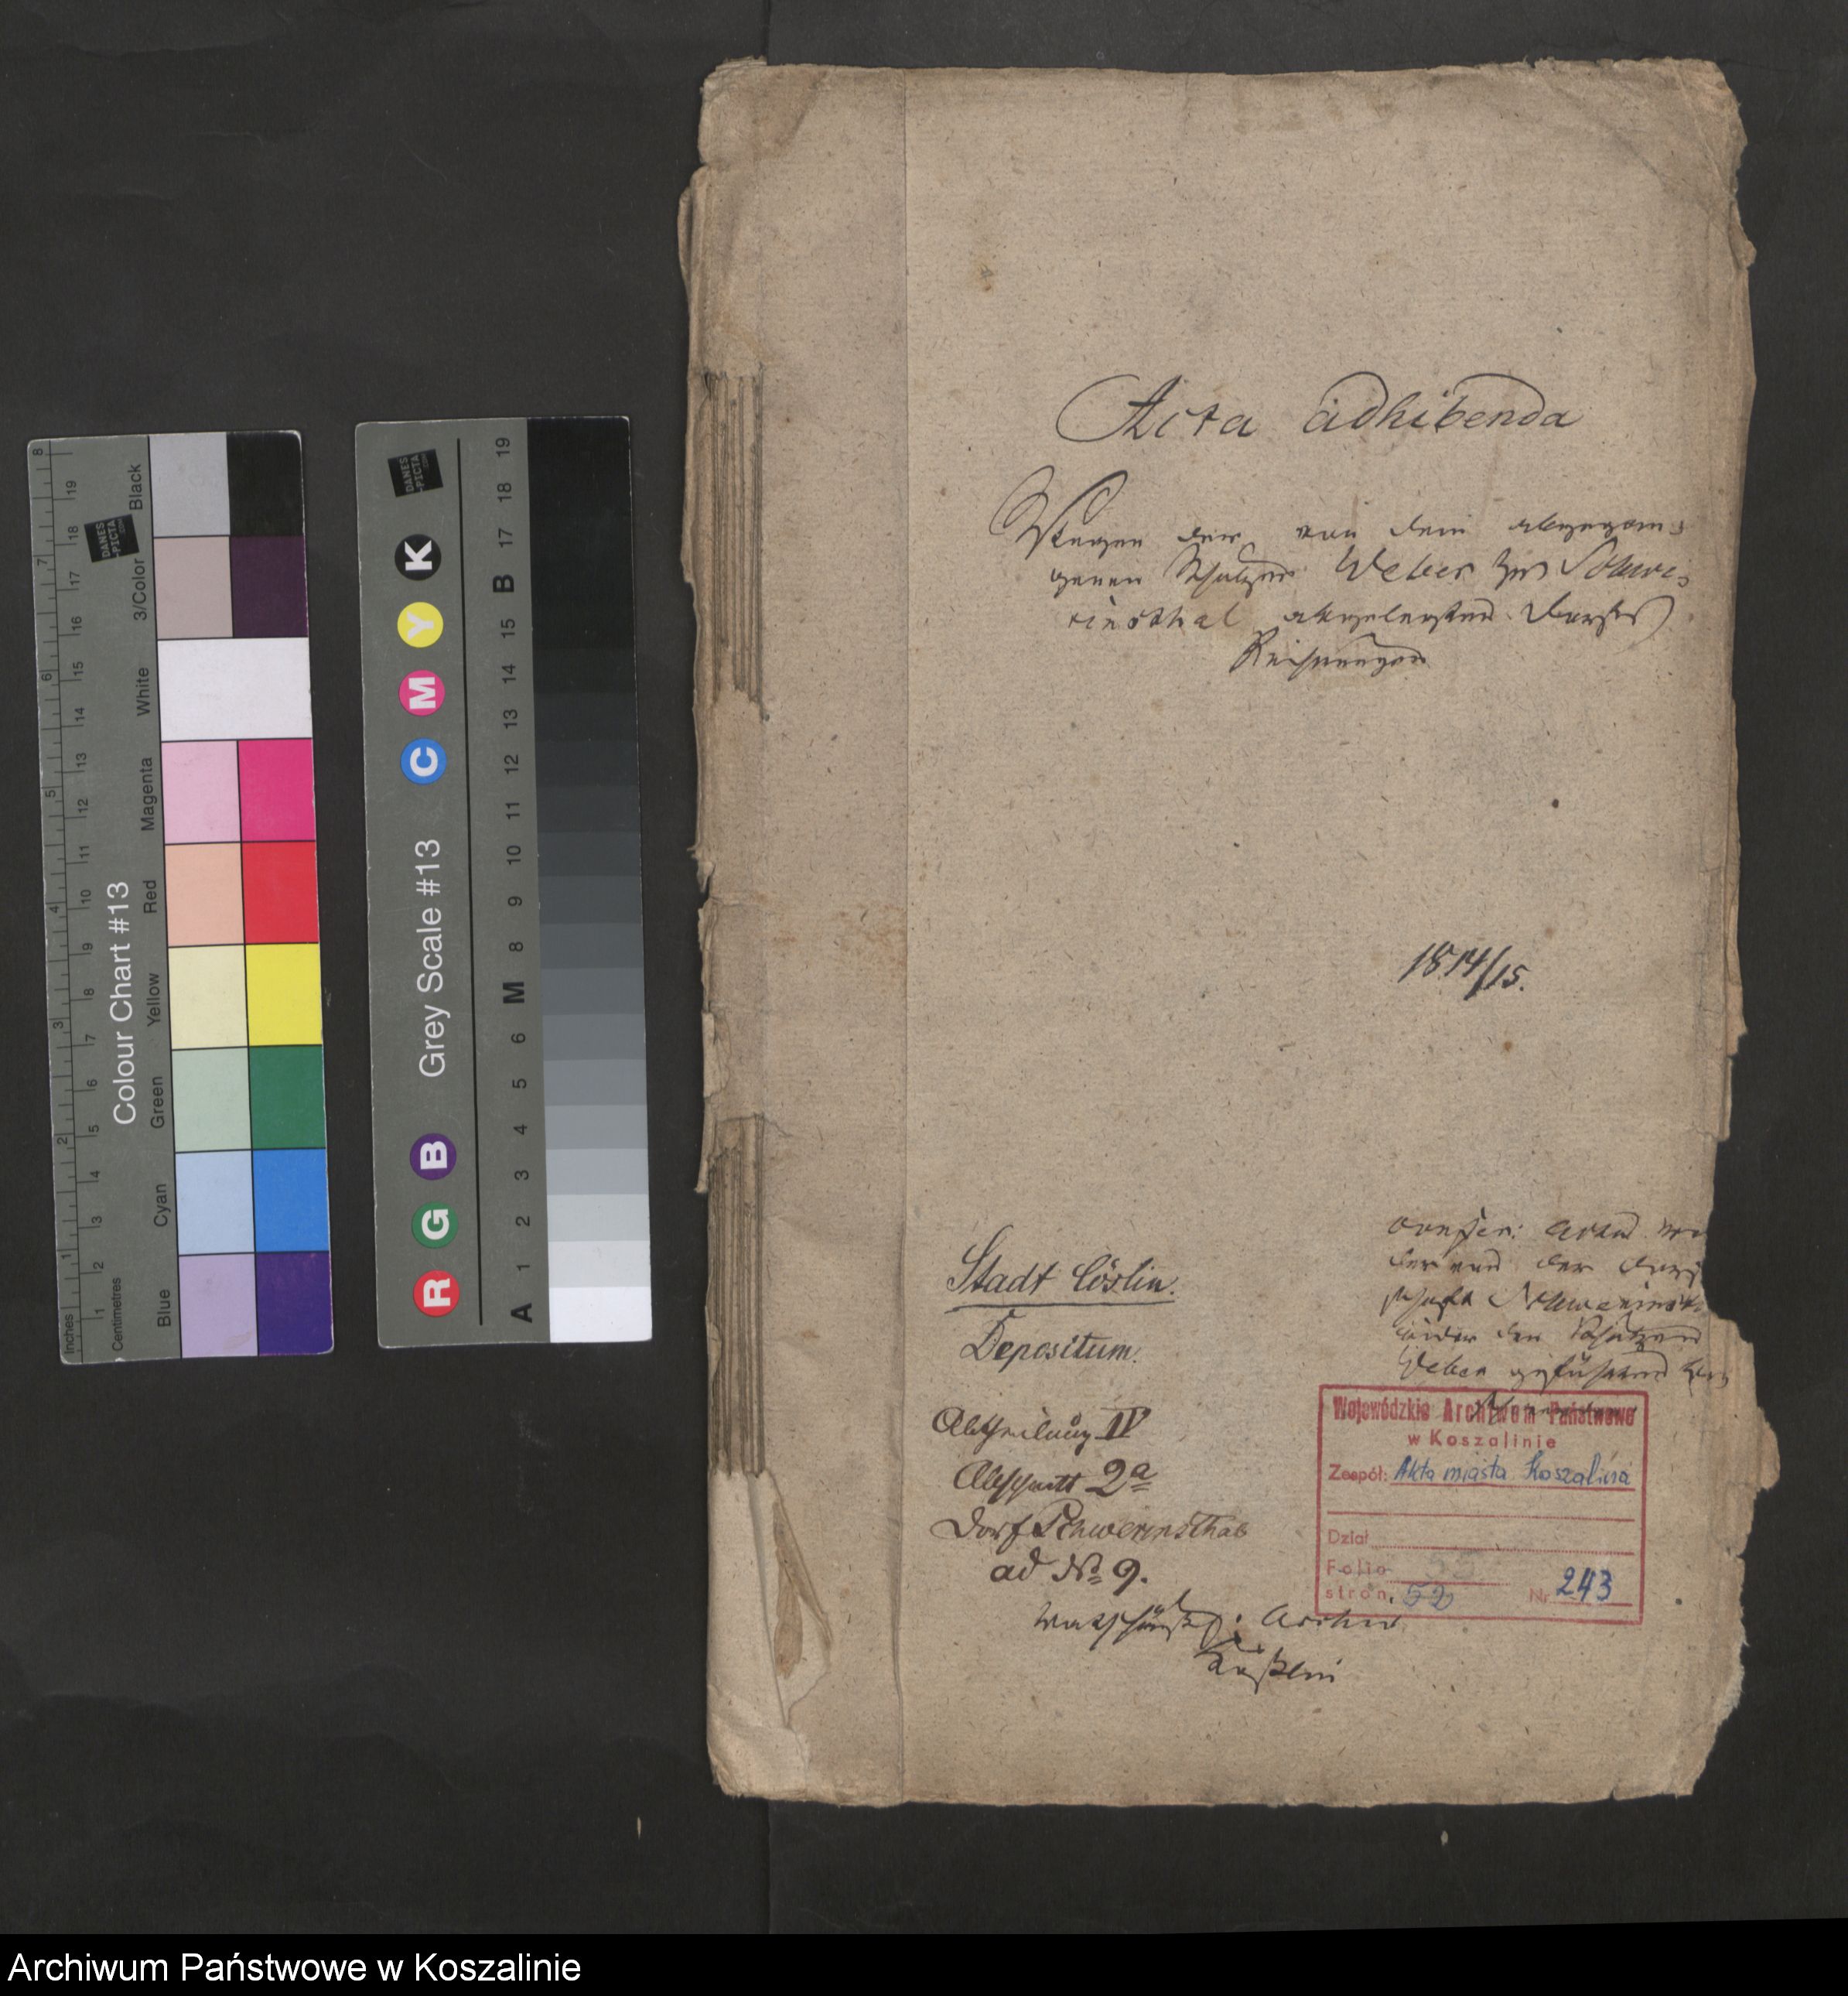 Acta adhibenda
Wegen der von dem abgegan-
genen Schulzen Weber zu Schwe-
rinsthal abgelegten Dorfs
Rechnungen
1814/15.
Stadt Cöslin.
Depositum.
Abtheilung IV
Abschnitt 2a
Dorf Schwerinsthal
ad No 9.
Archiv
der von der Dorf
schaft Schwerinsth
wider den Schulzen
Weber geführten
Wojewódzkie Archiwum Państwowe
w Koszalinie
Zespół: Akta miasta Koszalina
Dział
Folio
stron, 52 Nr 243
Colour Chart #13
Inches
Centimetres
Blue
Cyan
Green
Yellow
Red
Magenta
White
3/Color
Black
DANES
-PICTA
.COM
1 2 3 4 5 6 7 8
1 2 3 4 5 6 7 8 9 10 11 12 13 14 15 16 17 18 19
Grey Scale #13
R G B
C M Y K
DANES
-PICTA
.COM
A 1 2 3 4 5 6 M 8 9 10 11 12 13 14 15 B 17 18 19
Archiwum Państwowe w Koszalinie